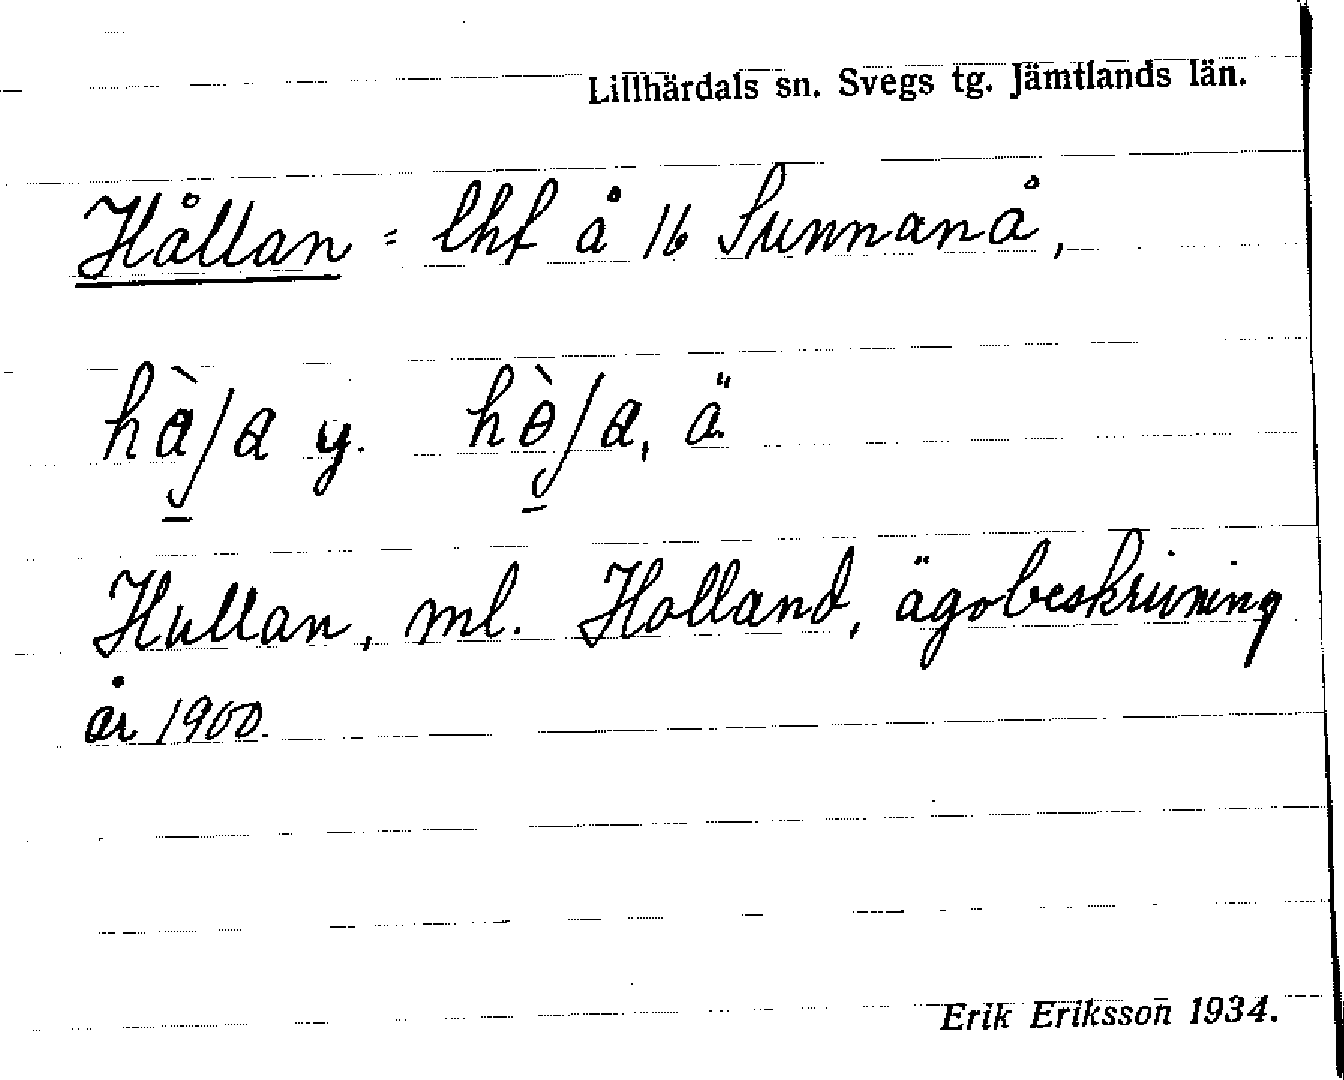 Lillhärdals sn. Svegs tg. Jämtlands län.
Hållan = lhf å 16 Sunnanå,
y. ä.
Hullan, ml. Holland, ägobeskrivning
år 1900.
Erik Eriksson 1934.